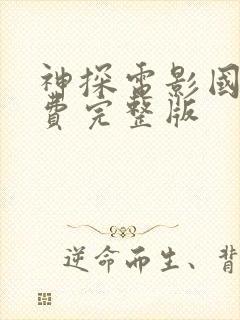 神探電影國
費完整版
逆命而生、背